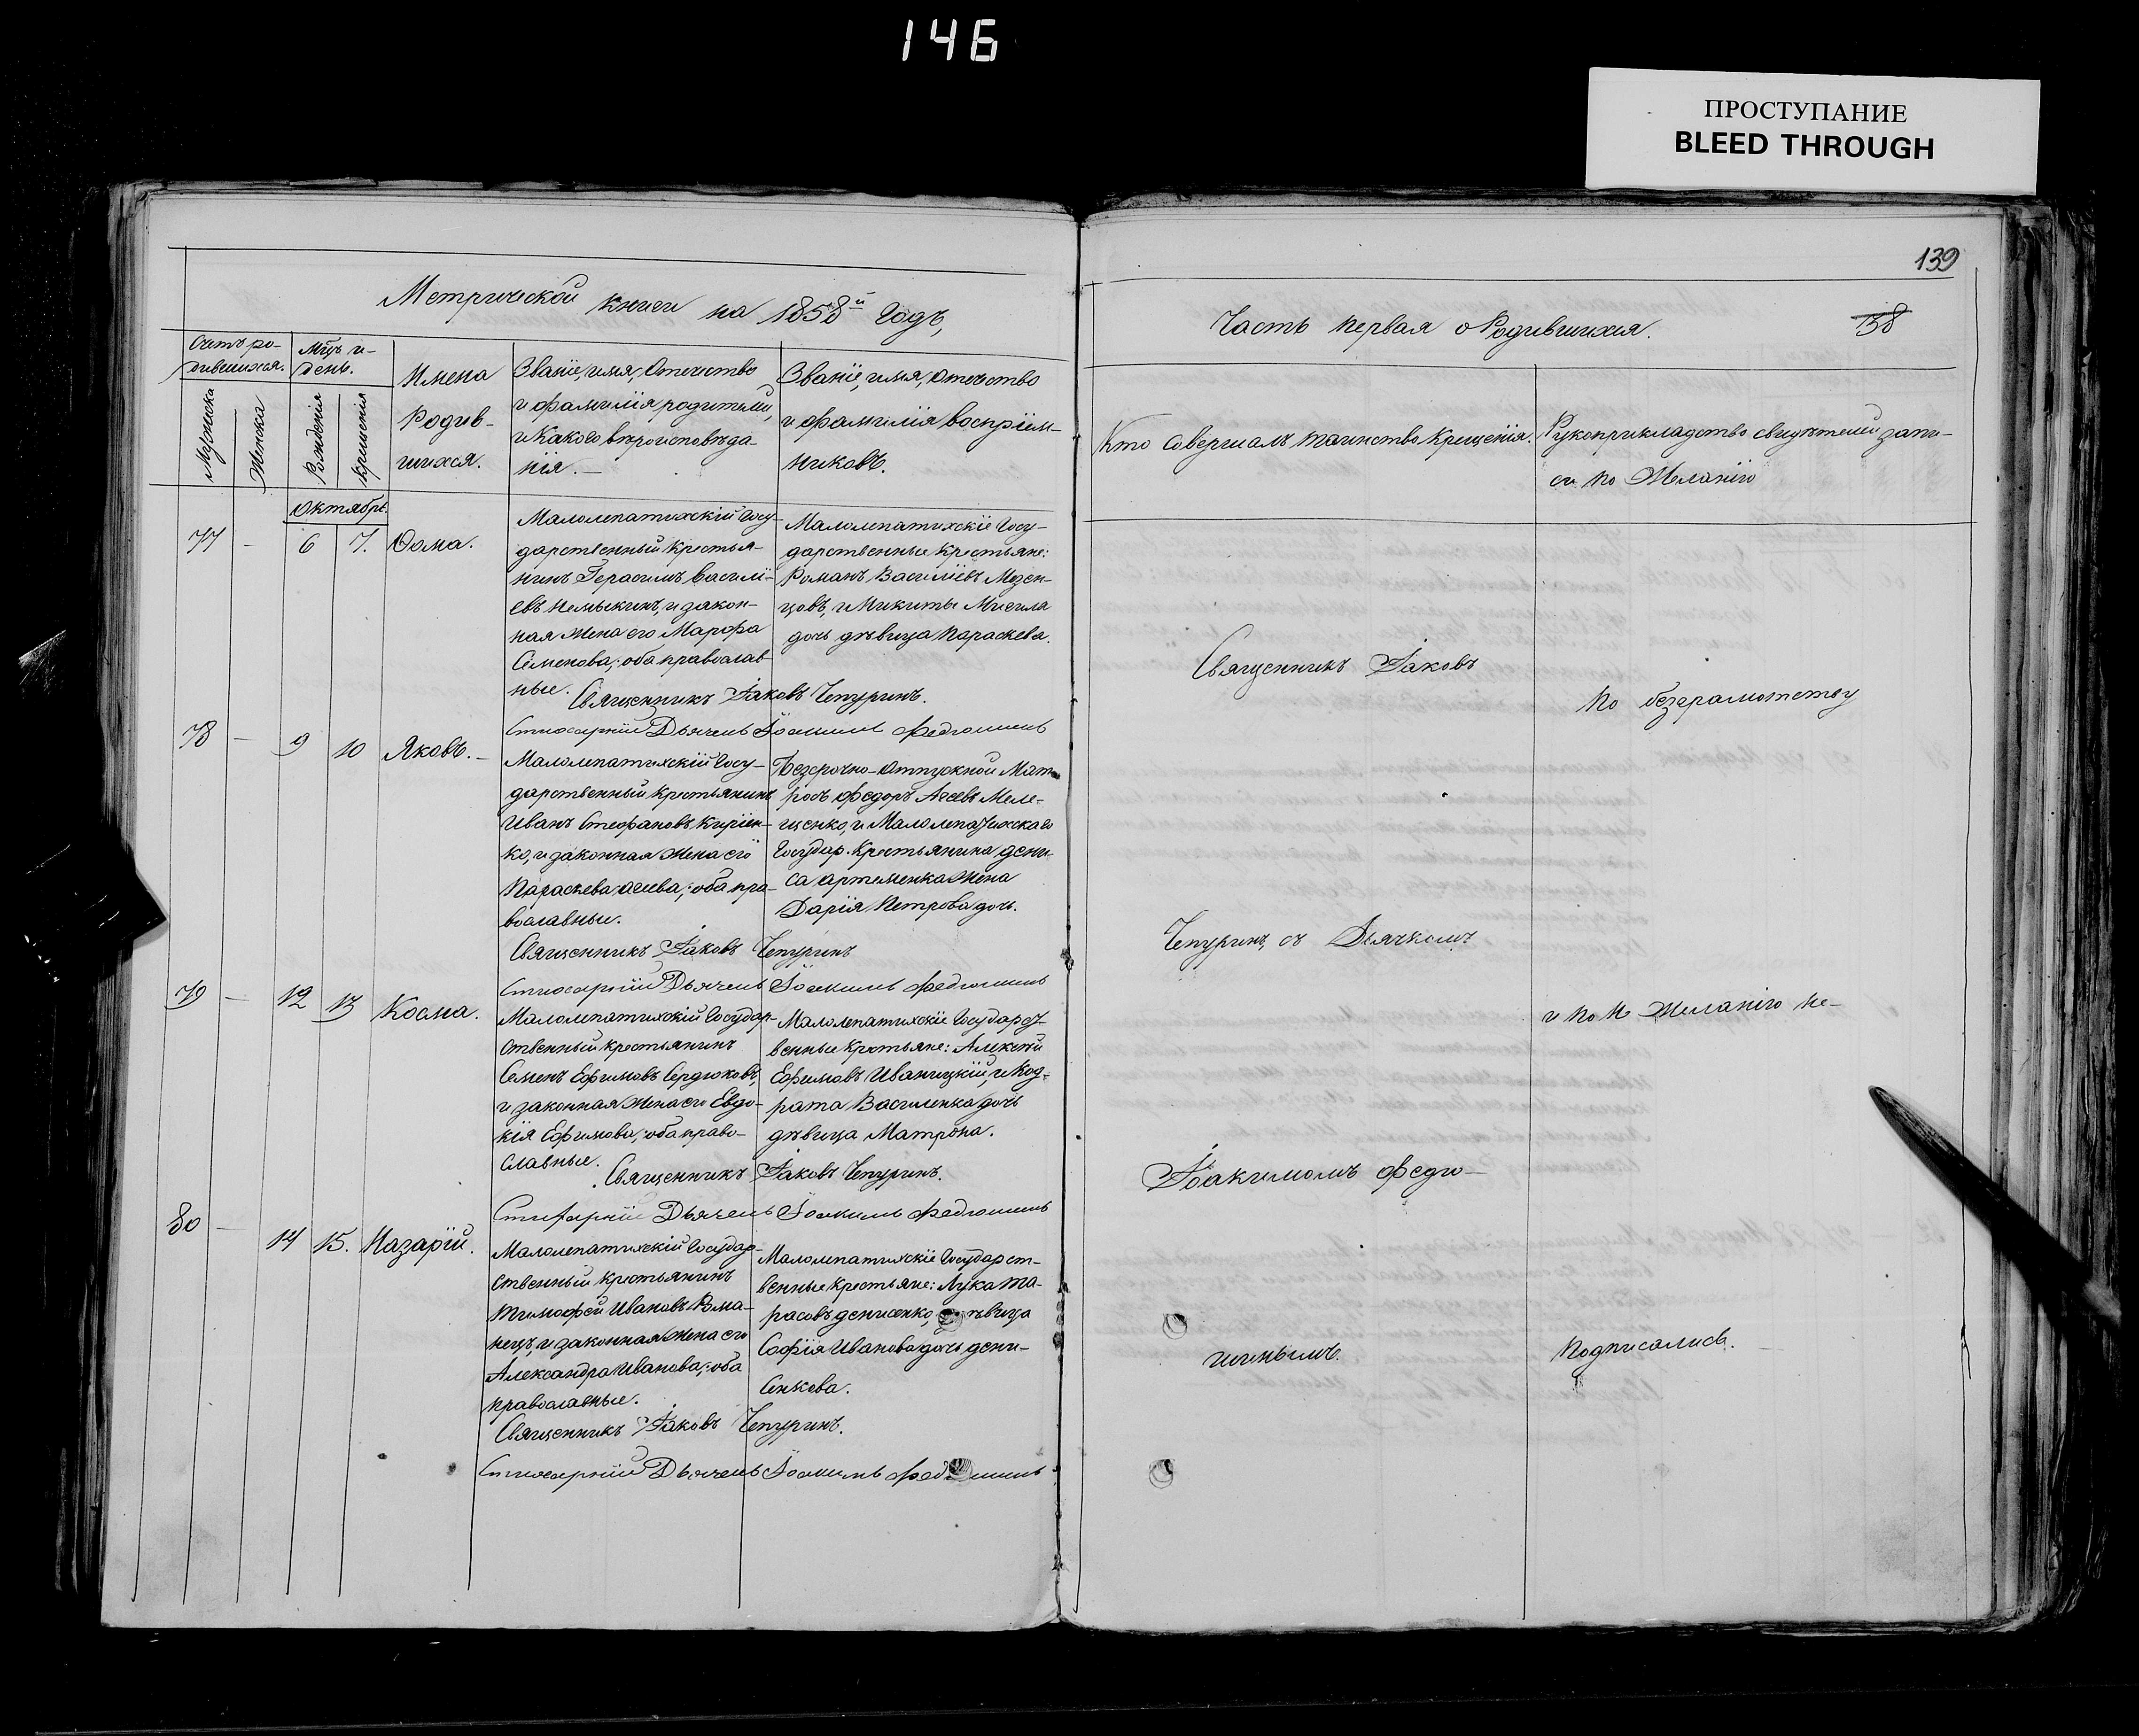 146
ПРОСТУПАНИЕ
BLEED THROUGH
139
138
Метрической книги на 1858й Годъ,
Часть первая о Родившихся.
Счетъ ро-
дившихся.
Мужеска
Женска
Мцъ и
день.
Рожденія
крещенія
Имена
Родив-
шихся.
Званіе, имя, Отечество
и фамилія родителей,
и Какого вѣроисповѣда-
нія.
Званіе, имя, отечество
и фамилія воспріем-
никовъ.
Кто совершалъ таинство Крещенія.
Рукоприкладство свидѣтелей запи-
си по Желанію
Октябрь.
77 - 6 7. Ѳома.
Малолепатихскій Госу-
дарственный крестья-
нинъ Герасимъ Василі-
евъ и закон-
ная жена его Марфа
Семенова; оба православ-
ные.
Малолепатихскіе Госу-
дарственные крестьяне:
Романъ Василіевъ Мезен-
цовъ, и Микиты Мисила
дочь дѣвица Параскева.
Священникъ Іаковъ Чепуринъ.
Стихарный Дьячекъ Іоакимъ Федюшинъ
78 - 9 10 Яковъ.
Малолепатихскій Госу-
дарственный крестьянинъ
Иванъ Стефановъ Киріен-
ко, и законная жена его
Параскева агиева; оба пра-
вославные.
Безсрочно-Отпускной Мат-
росъ Федоръ Агеевъ Меле-
щенко, и Малолепатихскаго
Государ. Крестьянина Дени-
са артеменка жена
Дарія Петрова дочь.
Священникъ Іаковъ Чепуринъ
Стихарный Дьячекъ Іоакимъ Федюшинъ
79 - 12 13 Косма.
Малолепатихскій Государ-
ственный крестьянинъ
Семенъ Ефимовъ Сердюковъ,
и законная жена его Евдо-
кія Ефимова; оба право-
славные.
Малолепатихскіе Государст-
венные крестьяне: Алексей
Ефимовъ Иваницкій, и Код-
рата Василенка дочь
дѣвица Матрона.
Священникъ Іаковъ Чепуринъ.
Стихарный Дьячекъ Іоакимъ Федюшинъ
80 - 14 15. Назарій.
Малолепатихскій Государ-
ственный крестьянинъ
Тимофей Ивановъ Рома-
нецъ, и законная жена его
Александра Иванова; оба
православные.
Малолепатихскіе Государст-
венные крестьяне: Лука Та-
расовъ денисенко, дѣвица
Софія Иванова дочь дени-
сенкова.
Священникъ Іаковъ Чепуринъ.
Стихарный Дьячекъ Іоакимъ Федюшинъ
Священникъ Іаковъ
Чепуринъ, съ Дьячкомъ
Іоакимомъ Федю-
шинымъ.
По безграмотству
и по не желанію не-
подписались.